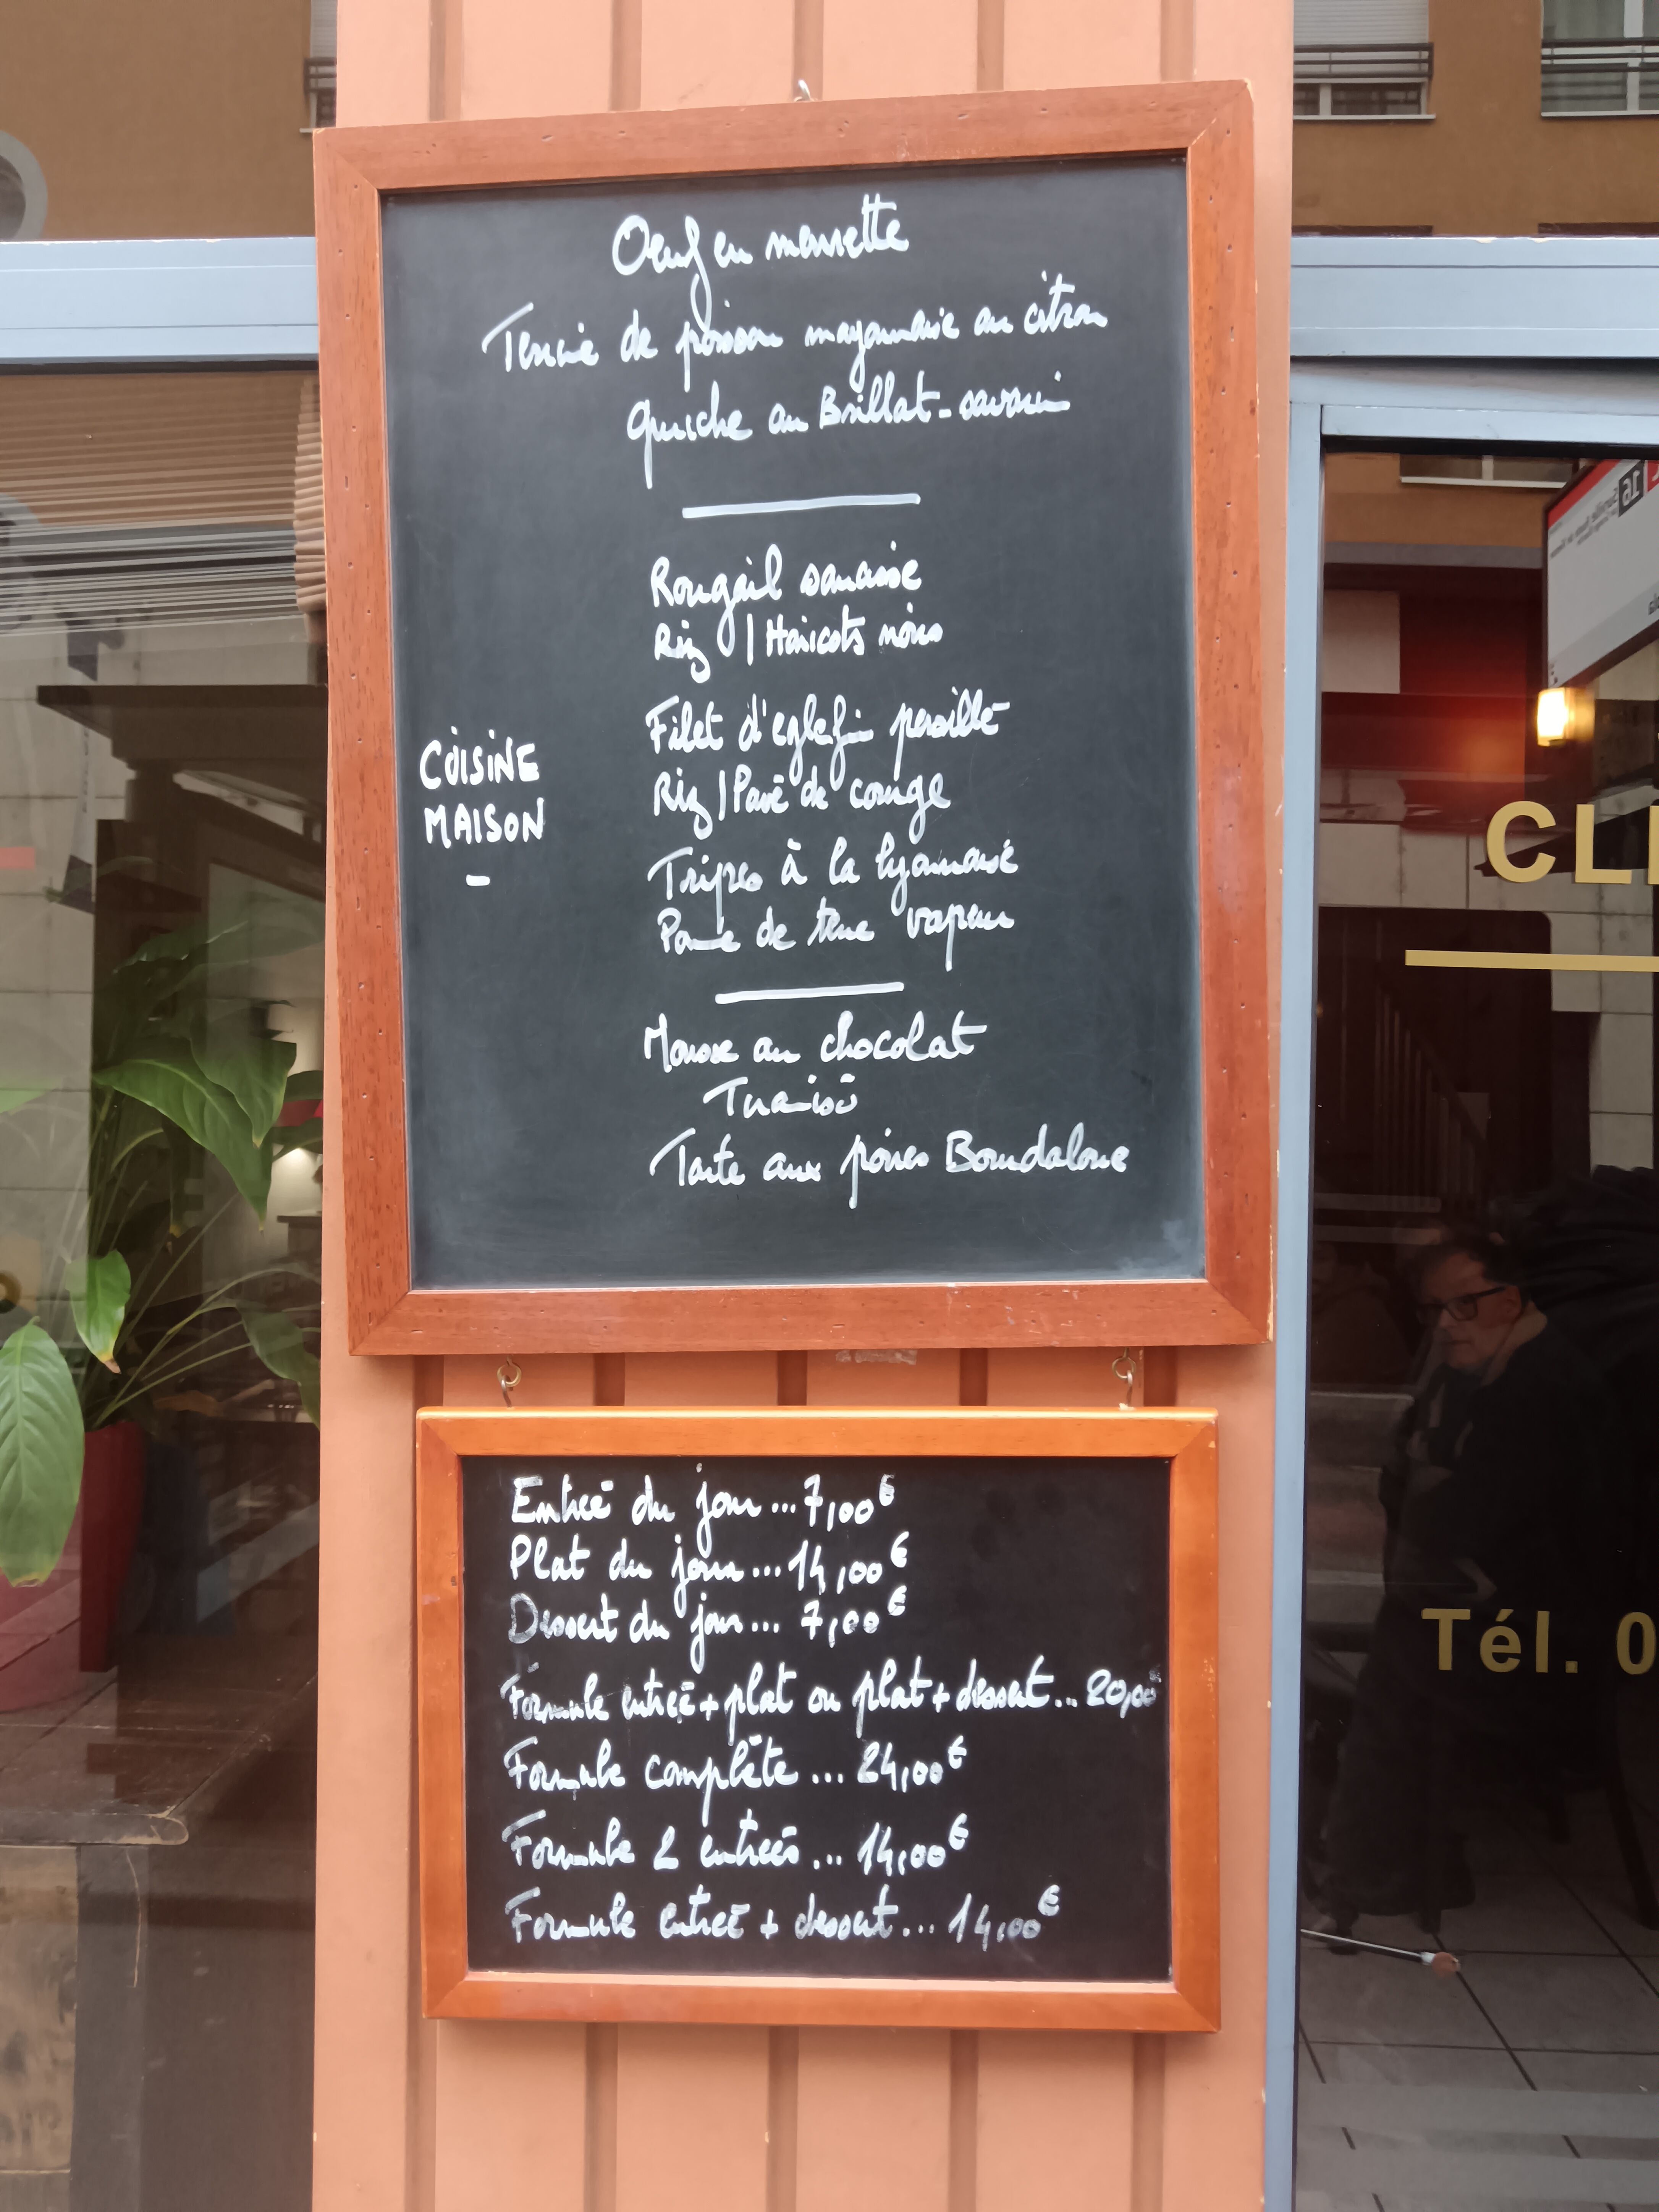 Oeuf en meurette
Terrine de poisson mayonnaise au citron
Quiche au Brillat-savarin
Rougail saucisse
Riz / Haricots noirs
Filet d'eglefin persillé
Riz / Pavé de courge
CUISINE
MAISON
Tripes à la lyonnaise
Pomme de terre vapeur
Mousse au chocolat
Tiramisù
Tarte aux poires Bourdaloue
Entrée du jour ... 7,00€
Plat du jour ... 14,00€
Dessert du jour ... 7,00€
Formule entrée + plat ou plat + dessert ... 20,00€
Formule complète ... 24,00€
Formule 2 entrées ... 14,00€
Formule entrée + dessert ... 14,00€
CLI
Tél. 0